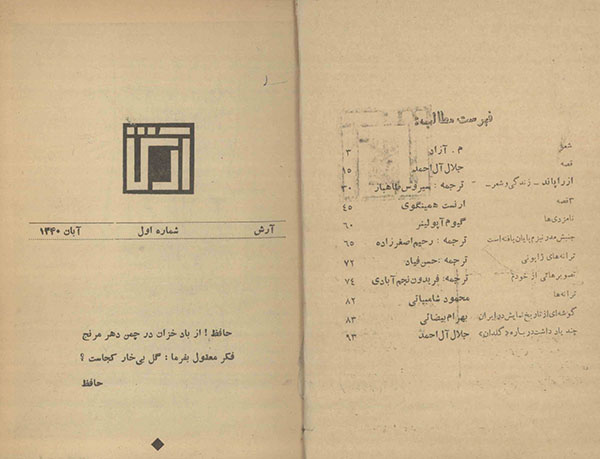 فهرست مطالب:
شعر م . آزاد ۳
قصه جلال آل احمد ۱۵
ازراپاند - زندگی و شعر - ترجمه : سیروس طاهباز ۳۰
۳قصه ارنست همینگوی ۴۵
نامزدی‌ها گیوم آپولینر ۶۰
جنبش مدرنیزم پایان یافته است ترجمه : رحیم اصغرزاده ۶۵
ترانه‌های ژاپونی ترجمه : حسن فیاد ۷۲
تصویرهائی از خودم ترجمه : فریدون نجم‌آبادی ۷۴
ترانه‌ها محمود شامبیاتی ۸۲
گوشه‌ای از تاریخ نمایش در ایران بهرام بیضائی ۸۳
چند یادداشت درباره «گلدان» جلال آل احمد ۹۳
آرش شماره اول آبان ۱۳۴۰
حافظ ! از باد خزان در چمن دهر مرنج
فکر معقول بفرما : گل بی‌خار کجاست ؟
حافظ